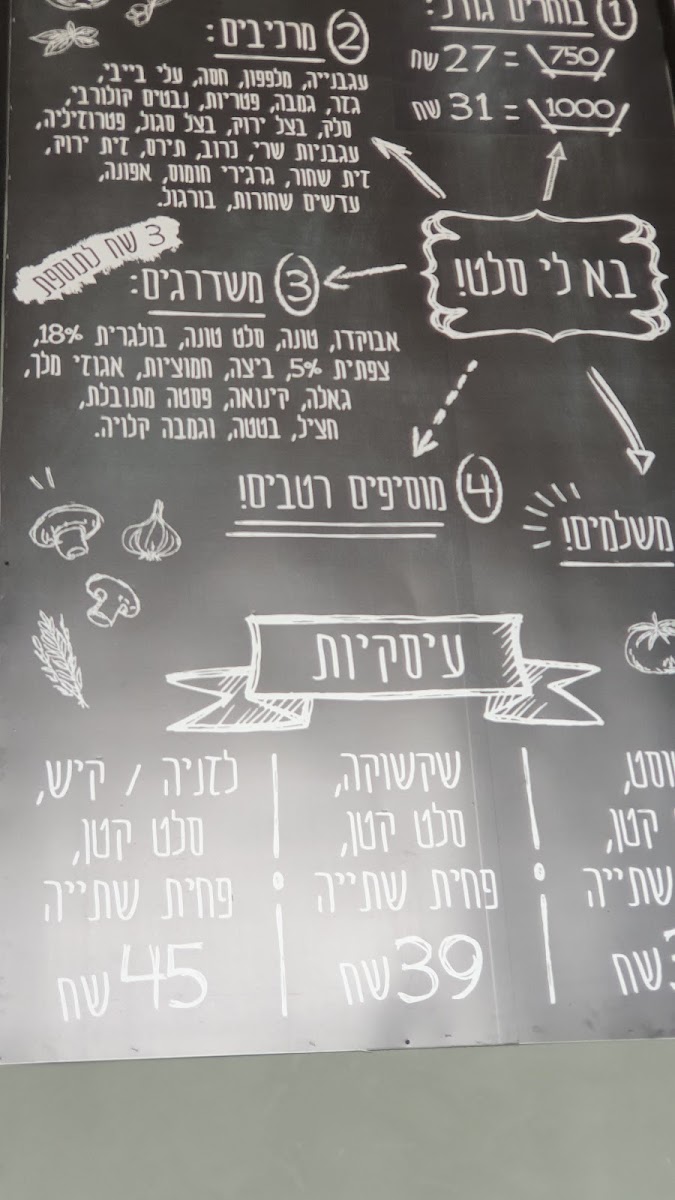 1 בוחרים גודל:
750 = 27 שח
1000 = 31 שח
2 מרכיבים:
עגבנייה, מלפפון, חסה, עלי בייבי,
גזר, גמבה, פטריות, נבטים קולורבי,
סלק, בצל ירוק, בצל סגול, פטרוזיליה,
עגבניות שרי, כרוב, תירס, זית ירוק,
זית שחור, גרגירי חומוס, אפונה,
עדשים שחורות, בורגול.
בא לי סלט!
3 משדרגים:
3 שח לתוספת
אבוקדו, טונה, סלט טונה, בולגרית 18%,
צפתית 5%, ביצה, חמוציות, אגוזי מלך,
גאלה, קינואה, פסטה מתובלת,
חציל, בטטה, וגמבה קלויה.
4 מוסיפים רטבים!
משלמים!
עיסקיות
קטן,
שתייה
שח
שקשוקה,
סלט קטן,
פחית שתייה
39 שח
לזניה / קיש,
סלט קטן,
פחית שתייה
45 שח